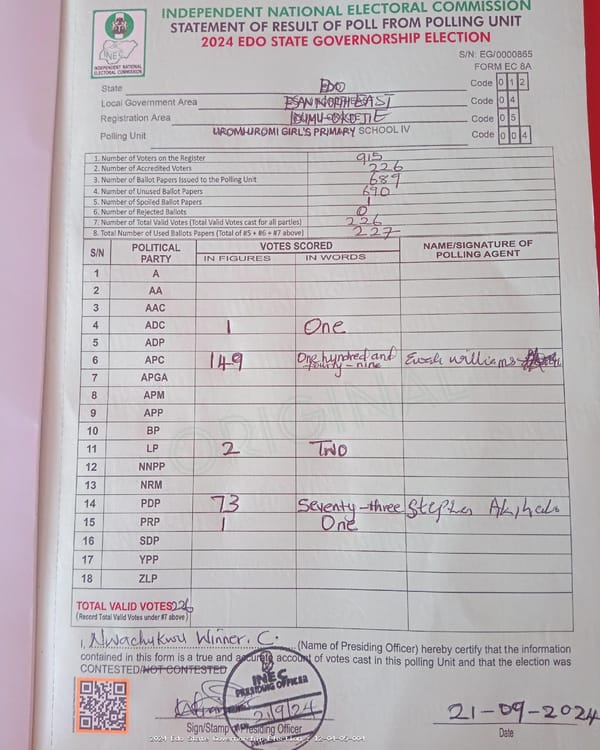 INDEPENDENT NATIONAL ELECTORAL COMMISSION
STATEMENT OF RESULT OF POLL FROM POLLING UNIT
2024 EDO STATE GOVERNORSHIP ELECTION
INEC
INDEPENDENT NATIONAL ELECTORAL COMMISSION
S/N: EG/0000865
FORM EC 8A
State EDO Code 0 1 2
Local Government Area ESAN NORTH EAST Code 0 4
Registration Area IDUMU-OKOJIE Code 0 5
Polling Unit UROMI-UROMI GIRL'S PRIMARY SCHOOL IV Code 0 0 4
1. Number of Voters on the Register 915
2. Number of Accredited Voters 226
3. Number of Ballot Papers Issued to the Polling Unit 689
4. Number of Unused Ballot Papers 690
5. Number of Spoiled Ballot Papers 1
6. Number of Rejected Ballots 0
7. Number of Total Valid Votes (Total Valid Votes cast for all parties) 226
8. Total Number of Used Ballots Papers (Total of #5 + #6 + #7 above) 227
S/N POLITICAL PARTY VOTES SCORED NAME/SIGNATURE OF POLLING AGENT
IN FIGURES IN WORDS
1 A
2 AA
3 AAC
4 ADC 1 One
5 ADP
6 APC 149 One hundred and fourty-nine Ewah Williams
7 APGA
8 APM
9 APP
10 BP
11 LP 2 Two
12 NNPP
13 NRM
14 PDP 73 Seventy-three Stephen
15 PRP 1 One
16 SDP
17 YPP
18 ZLP
ORIGINAL
TOTAL VALID VOTES 226
(Record Total Valid Votes under #7 above)
I, Nwachukwu Winner. C. (Name of Presiding Officer) hereby certify that the information
contained in this form is a true and accurate account of votes cast in this polling Unit and that the election was
CONTESTED/NOT CONTESTED
INEC
PRESIDING OFFICER
21/9/24
21-09-2024
Sign/Stamp of Presiding Officer
Date
2024 Edo State Governorship Election - 12-04-05-004